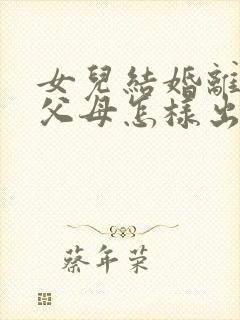 女兒結婚離
父母怎樣出
蔡年荣